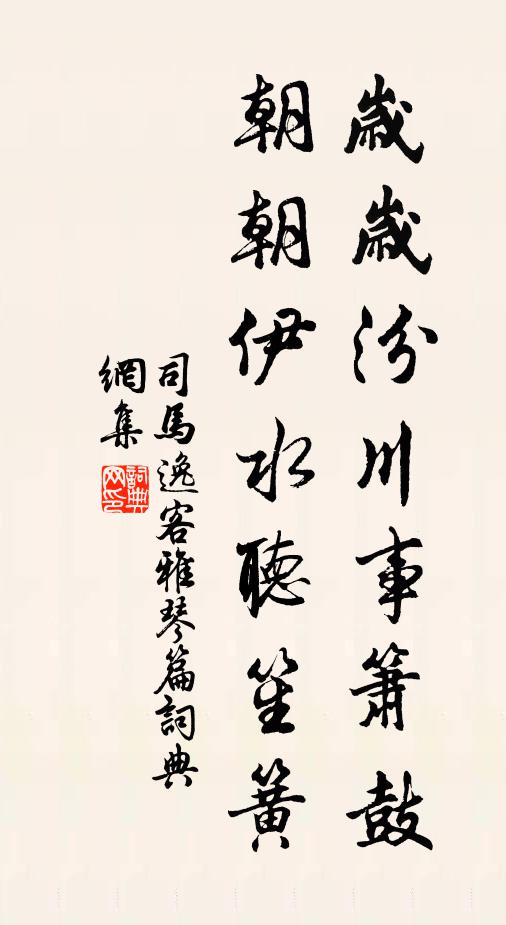 歲歲汾川事簫鼓
朝朝伊水聽笙簧
司馬逸客雅琴篇詞典
網集
詞典网印